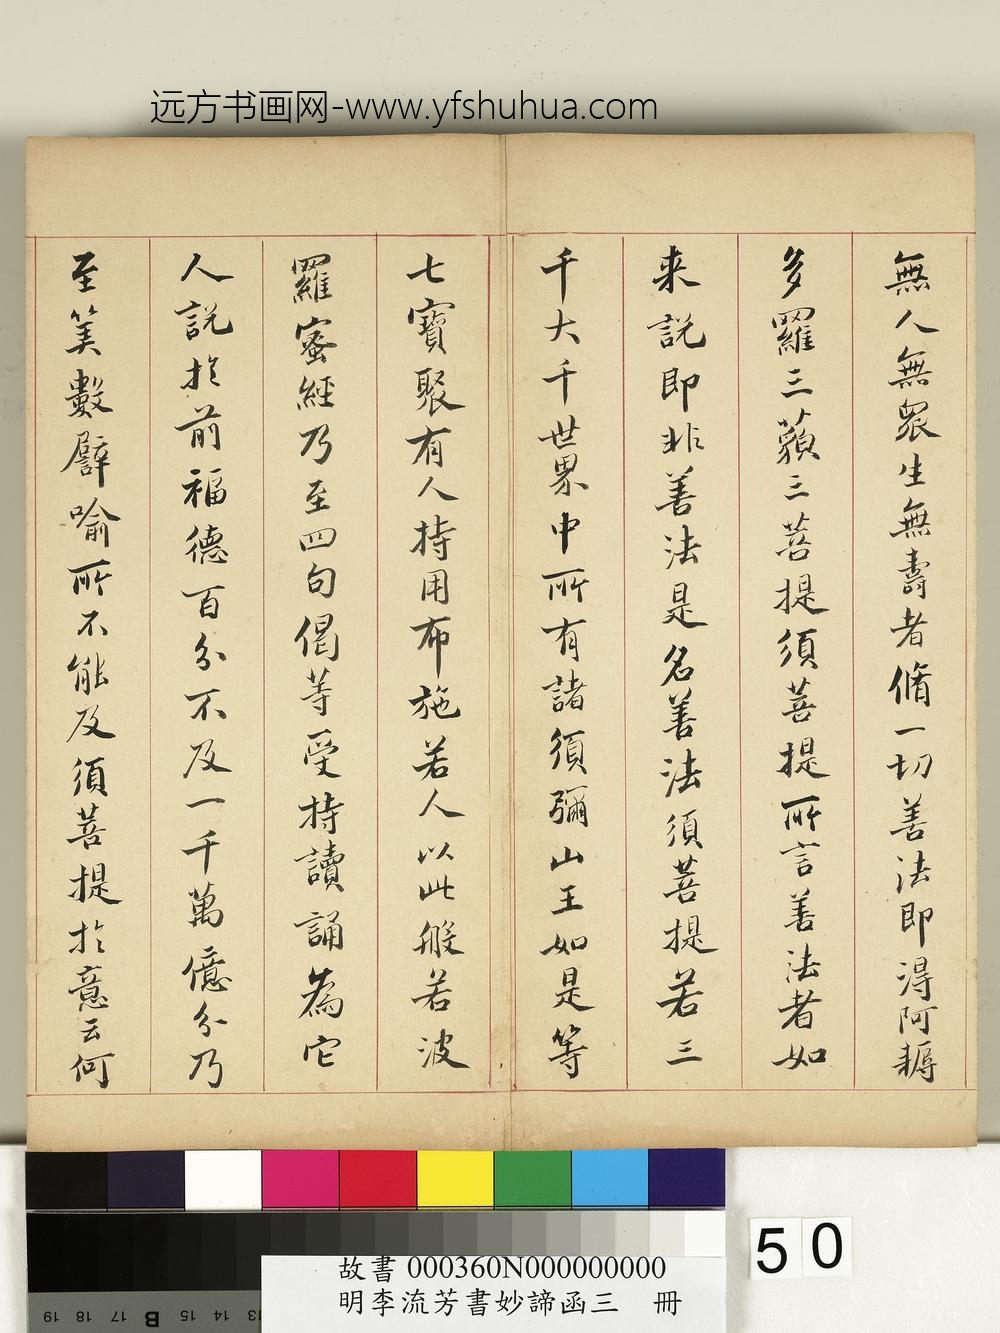 远方书画网-www.yfshuhua.com
無人無衆生無壽者脩一切善法即得阿耨
多羅三藐三菩提須菩提所言善法者如
来說即非善法是名善法須菩提若三
千大千世界中所有諸須彌山王如是等
七寶聚有人持用布施若人以此般若波
羅蜜經乃至四句偈等受持讀誦為它
人說於前福德百分不及一千萬億分乃
至筭數譬喻所不能及須菩提於意云何
50
故書 000360N000000000
明李流芳書妙諦函三 冊
19 18 17 16 15 14 13
B